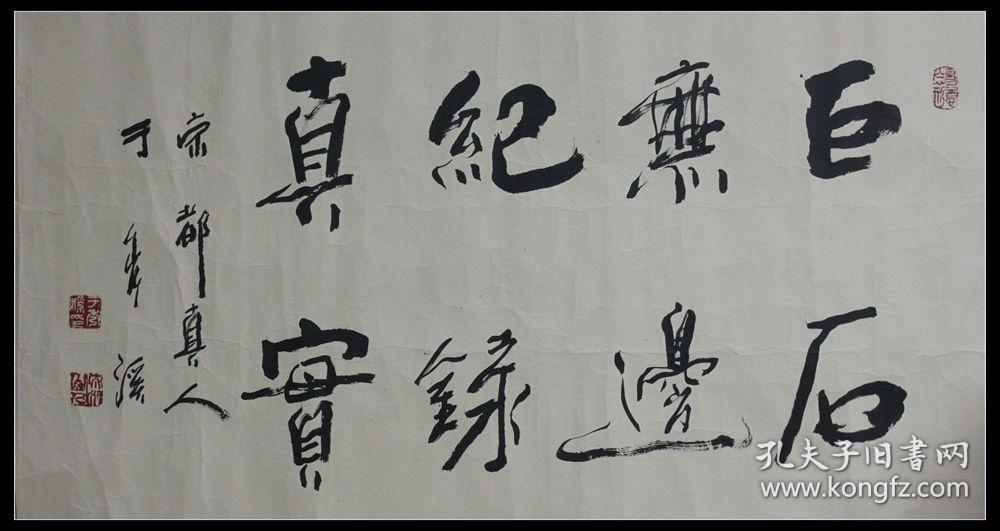 巨石
無邊
紀録
真實
宗都真人
于青溪
孔夫子旧書网
www.kongfz.com